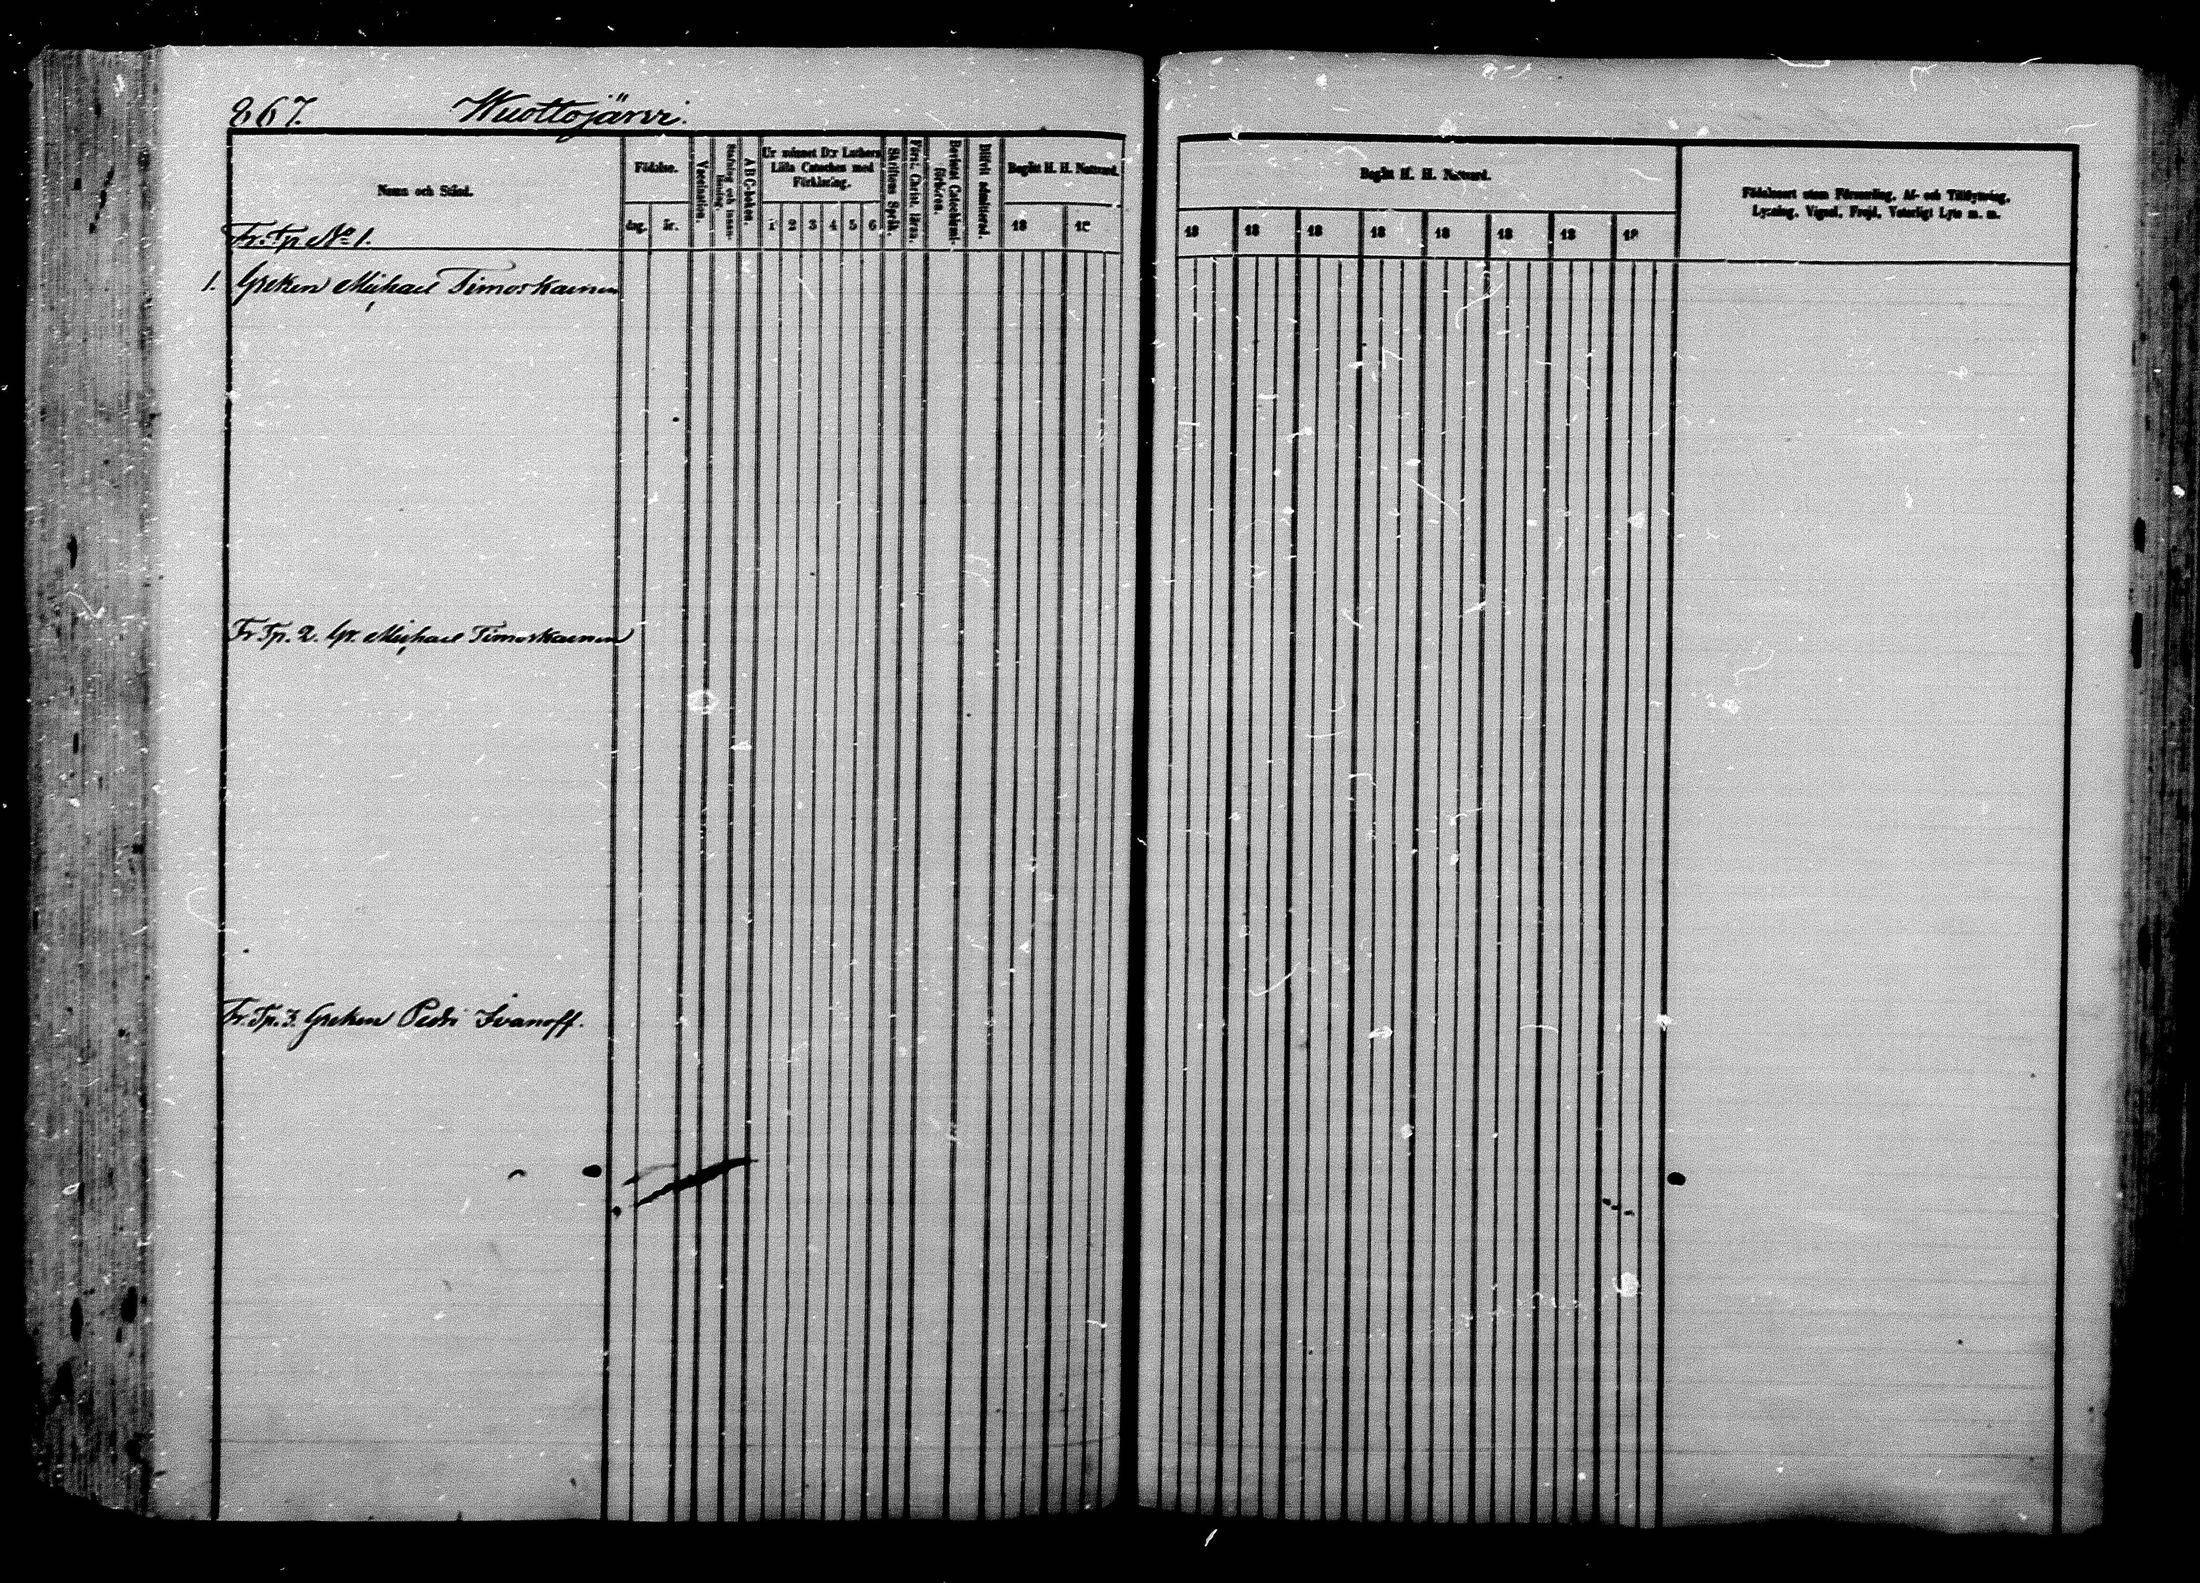 867. Wuottojärvi.
Namn och Stånd.
Födelse.
dag. år.
Vaccination.
A B C-boken.
Ur minnet D:r Luthers
Lilla Cateches med
Förklaring.
1 2 3 4 5 6
Skriftens Språk.
Först. Christ. lären.
Bevistat Catechismi-
förhören.
Blifvit admitterad.
Begått H. H. Nattvard.
18 18
Begått H. H. Nattvard.
18 18 18 18 18 18 18 18
Födelseort utom Församling, Af- och Tillflyttning,
Lysning, Vigsel, Frejd, Vaterligt Lyte m. m.
Fr. Tp. No 1.
1. Greken Michael Timoskainen
Fr. Tp. 2. Gr. Michael Timoskainen
Fr. Tp. 3. Greken Pedri Ivanoff.